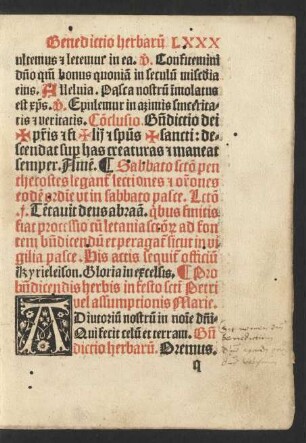 Benedictio herbarũ LXXX
ultemus ⁊ letemur in ea. ℣. Confitemini
dño qm̃ bonus quoniã in seculũ miscdia
eius. Alleluia. Pasca nostrũ imolatus
est xp̃s. ℣. Epulemur in azimis sinceritatis
⁊ veritatis. Cõclusio. Bñdictio dei
✠ pr̃is ⁊ fi ✠ lij ⁊ spũs ✠ sancti: descendat
sup has creaturas ⁊ maneat
semper. Amẽ. ¶ Sabbato sctõ penthecostes
legant᷑ lectiones ⁊ orõnes
eodẽ ordie ut in sabbato pasce. Lectõ
.j. Tẽtauit deus abraã. q̃bus finitis
fiat processio cũ letania sctõꝝ ad fontem
bñdicendũ et peragat᷑ sicut in vigilia
pasce. His actis sequit᷑ officiũ
kyrieleison. Gloria in excelsis. ¶ Pro
bñdicendis herbis in festo scti Petri
vel assumptionis Marie.
ADiutoriũ nostrũ in noĩe dñi.
Qui fecit celũ et terram. Bñdictio
herbarũ. Oremus.
q